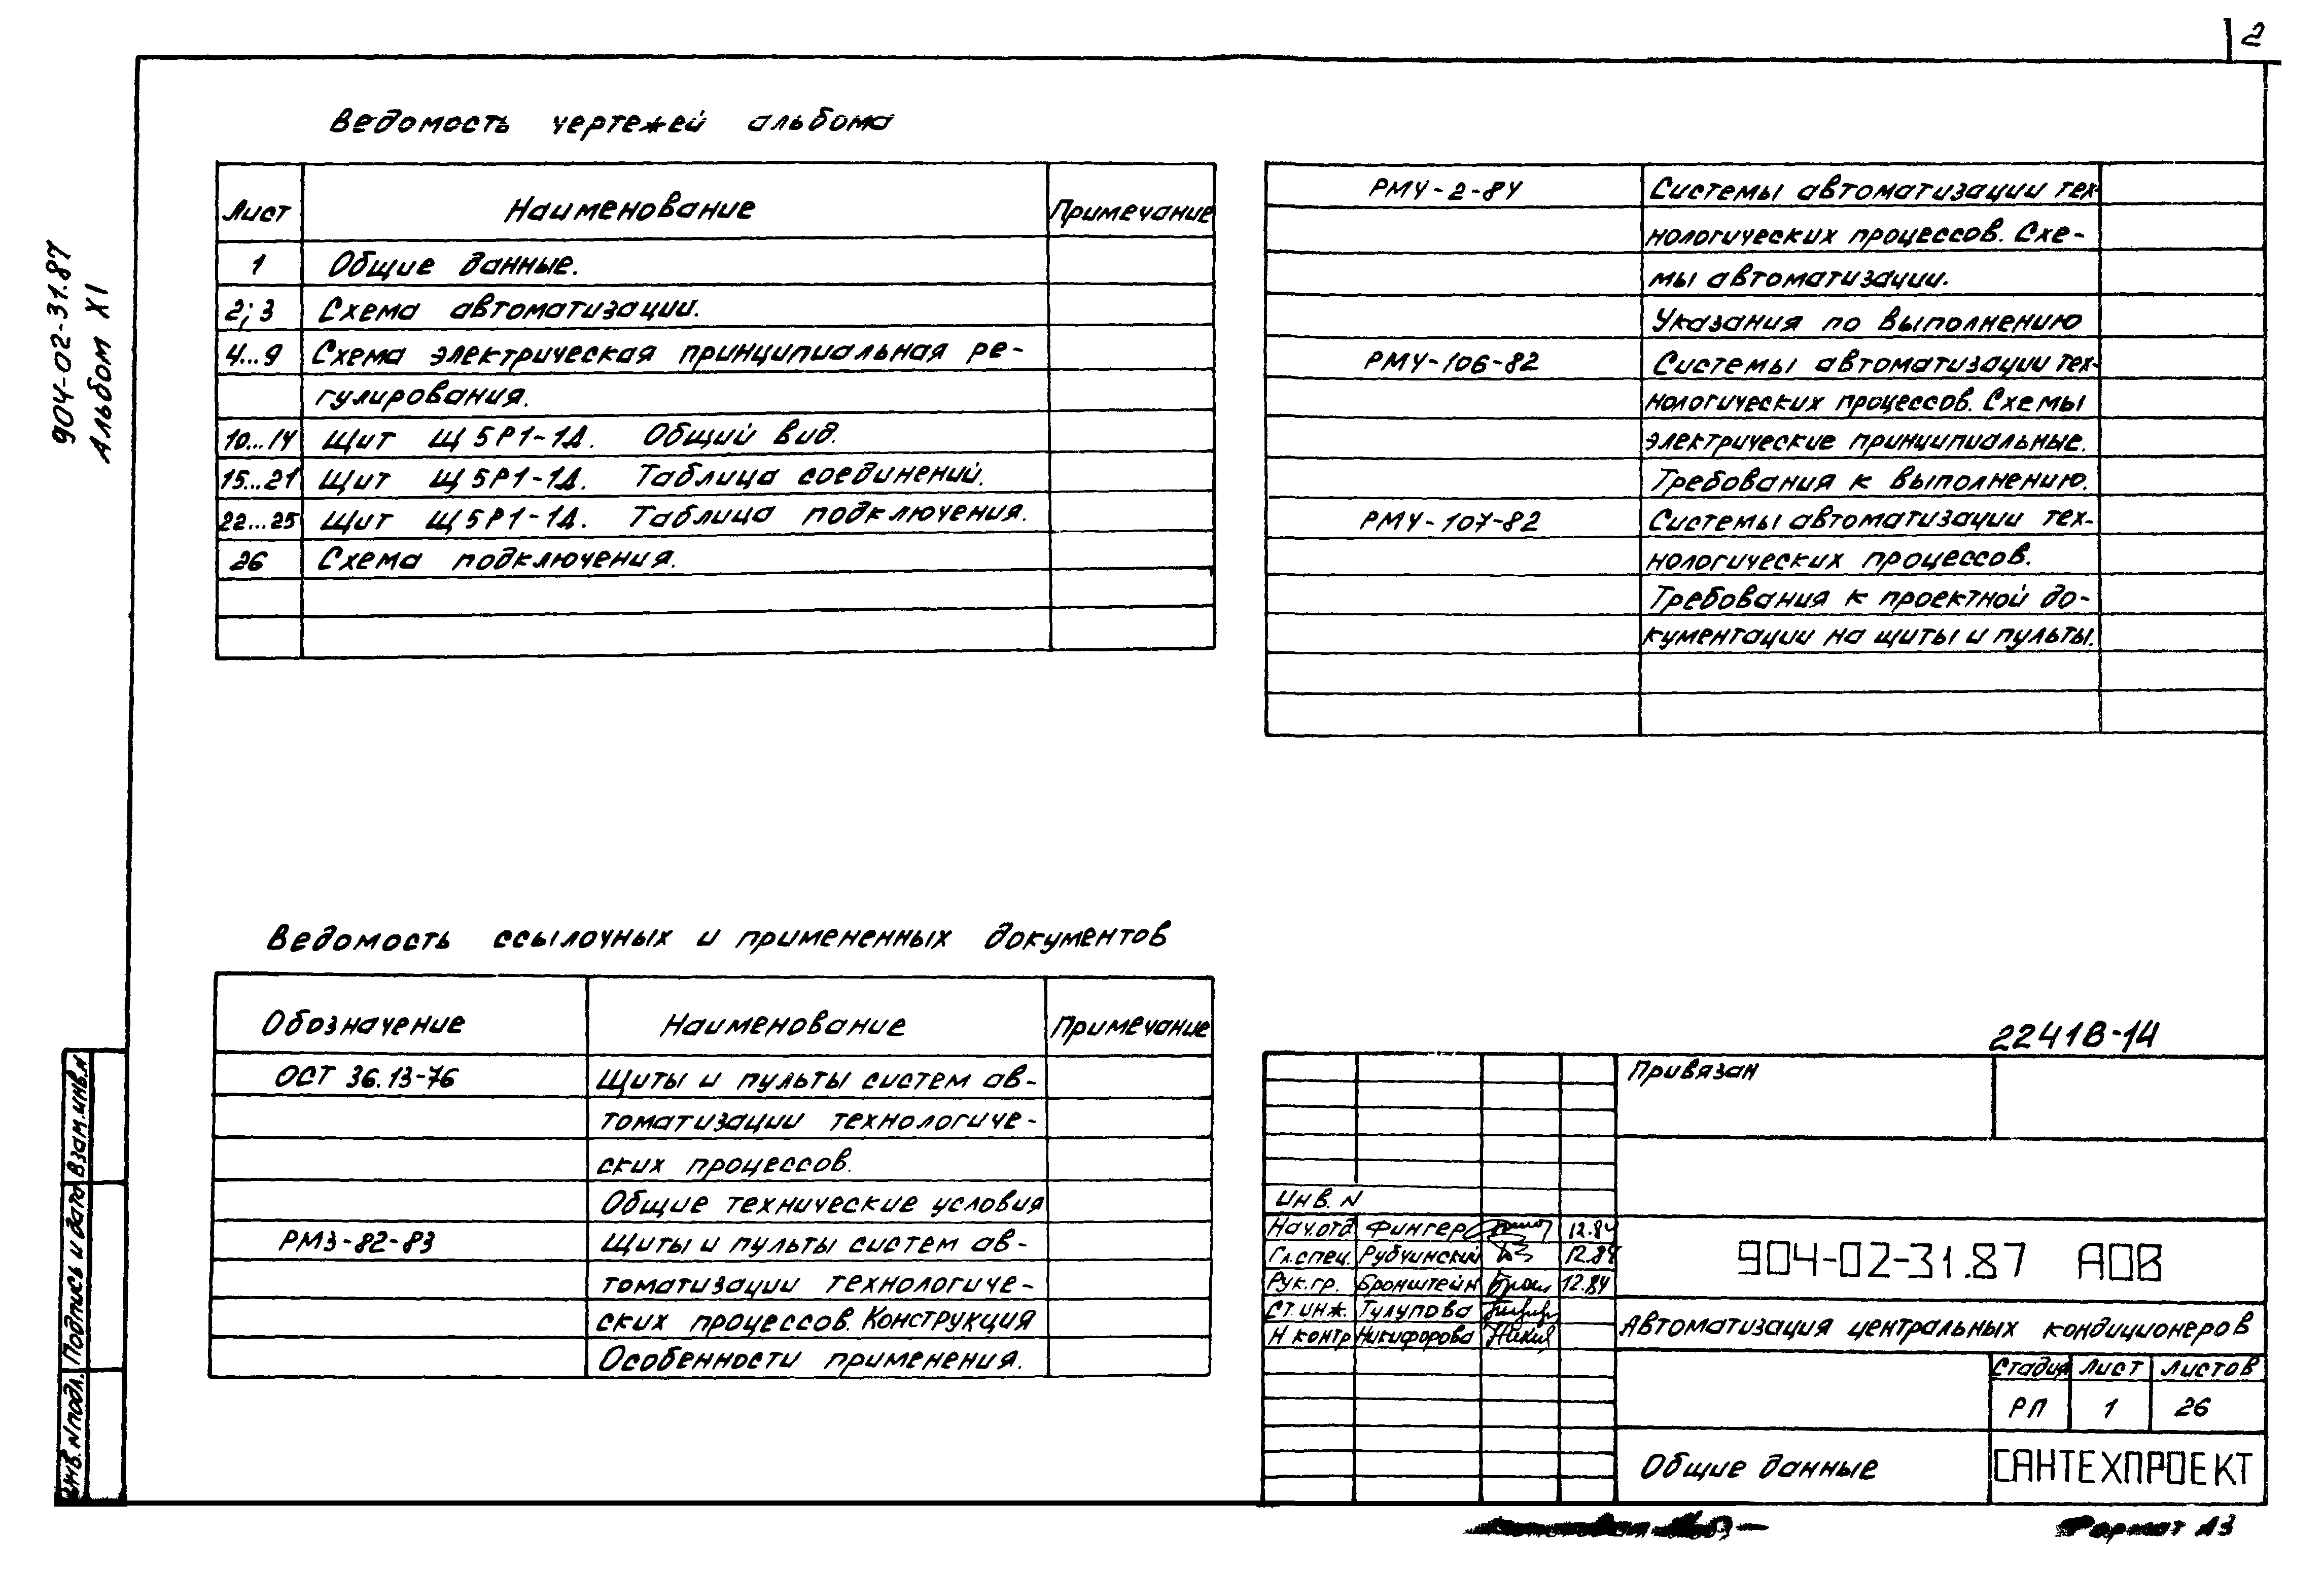 2
904-02-31.87
Альбом XI
Ведомость чертежей альбома
Лист Наименование Примечание
1 Общие данные.
2; 3 Схема автоматизации.
4...9 Схема электрическая принципиальная ре-
гулирования.
10...14 Щит Щ5Р1-1Д. Общий вид.
15...21 Щит Щ5Р1-1Д. Таблица соединений.
22...25 Щит Щ5Р1-1Д. Таблица подключения.
26 Схема подключения.
РМ4-2-84 Системы автоматизации тех-
нологических процессов. Схе-
мы автоматизации.
Указания по выполнению
РМ4-106-82 Системы автоматизации тех-
нологических процессов. Схемы
электрические принципиальные.
Требования к выполнению.
РМ4-107-82 Системы автоматизации тех-
нологических процессов.
Требования к проектной до-
кументации на щиты и пульты.
Ведомость ссылочных и примененных документов
Обозначение Наименование Примечание
ОСТ 36.13-76 Щиты и пульты систем ав-
томатизации технологиче-
ских процессов.
Общие технические условия
РМ3-82-83 Щиты и пульты систем ав-
томатизации технологиче-
ских процессов. Конструкция
Особенности применения.
2241В-14
Привязан
Инв. N
Нач.отд. Фингер 12.84
Гл.спец. Рубчинский 12.84
Рук.гр. Бронштейн 12.84
Ст.инж. Тулупова
Н контр Никифорова
904-02-31.87 АОВ
Автоматизация центральных кондиционеров
Стадия Лист Листов
РП 1 26
Общие данные
САНТЕХПРОЕКТ
Формат А3
Взам.инв.N
Подпись и дата
Инв. N подл.